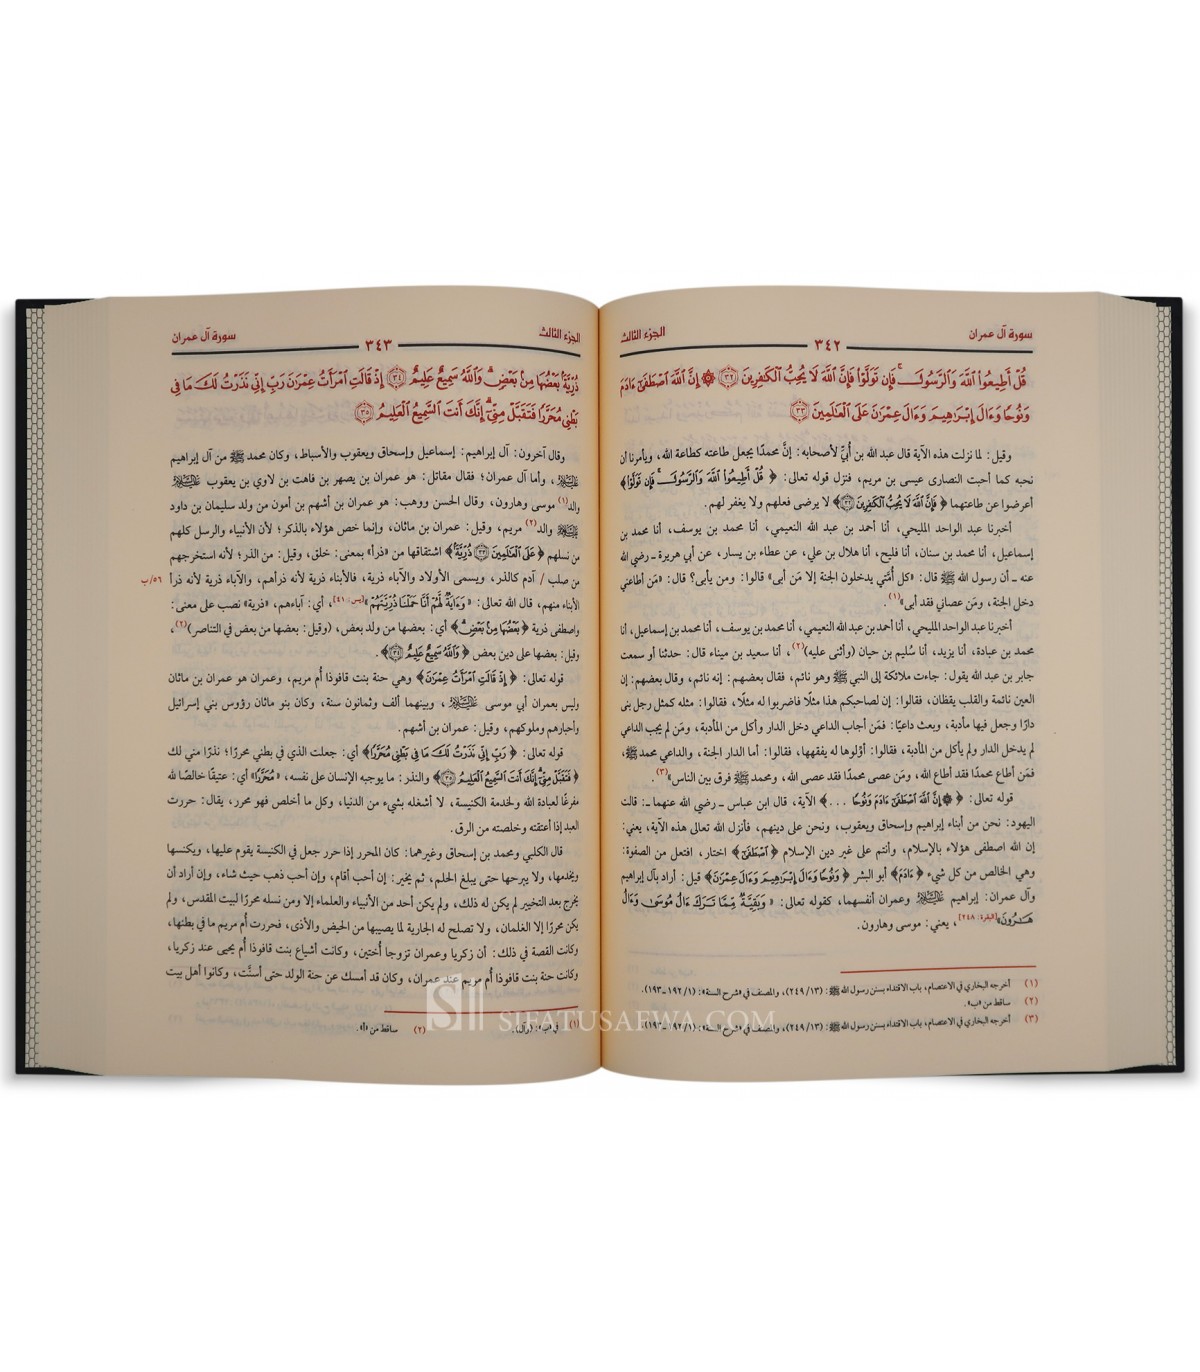 سورة آل عمران
٣٤٢
الجزء الثالث
قُلْ أَطِيعُوا۟ ٱللَّهَ وَٱلرَّسُولَ ۖ فَإِن تَوَلَّوْا۟ فَإِنَّ ٱللَّهَ لَا يُحِبُّ ٱلْكَٰفِرِينَ ﴿٣٢﴾ ۞ إِنَّ ٱللَّهَ ٱصْطَفَىٰٓ ءَادَمَ
وَنُوحًا وَءَالَ إِبْرَٰهِيمَ وَءَالَ عِمْرَٰنَ عَلَى ٱلْعَٰلَمِينَ ﴿٣٣﴾
وقيل: لما نزلت هذه الآية قال عبد الله بن أُبيٍّ لأصحابه: إنَّ محمدًا يجعل طاعته كطاعة الله، ويأمرنا أن
نحبه كما أحبت النصارى عيسى بن مريم، فنزل قوله تعالى: ﴿ قُلْ أَطِيعُوا۟ ٱللَّهَ وَٱلرَّسُولَ ۖ فَإِن تَوَلَّوْا۟ ﴾
أعرضوا عن طاعتهما ﴿ فَإِنَّ ٱللَّهَ لَا يُحِبُّ ٱلْكَٰفِرِينَ ﴿٣٢﴾ ﴾ لا يرضى فعلهم ولا يغفر لهم.
أخبرنا عبد الواحد المليحي، أنا أحمد بن عبد الله النعيمي، أنا محمد بن يوسف، أنا محمد بن
إسماعيل، أنا محمد بن سنان، أنا فليح، أنا هلال بن علي، عن عطاء بن يسار، عن أبي هريرة ـ رضي الله
عنه ـ أن رسول الله ﷺ قال: «كل أُمَّتي يدخلون الجنة إلا مَن أبى» قالوا: ومن يأبى؟ قال: «مَن أطاعني
دخل الجنة، ومَن عصاني فقد أبى»(١).
أخبرنا عبد الواحد المليحي، أنا أحمد بن عبد الله النعيمي، أنا محمد بن يوسف، أنا محمد بن إسماعيل، أنا
محمد بن عبادة، أنا يزيد، أنا سُليم بن حيان (وأثنى عليه)(٢)، أنا سعيد بن ميناء قال: حدثنا أو سمعت
جابر بن عبد الله يقول: جاءت ملائكة إلى النبي ﷺ وهو نائم، فقال بعضهم: إنه نائم، وقال بعضهم: إن
العين نائمة والقلب يقظان، فقالوا: إن لصاحبكم هذا مثلًا فاضربوا له مثلًا، فقالوا: مثله كمثل رجل بنى
دارًا وجعل فيها مأدبة، وبعث داعيًا: فمَن أجاب الداعي دخل الدار وأكل من المأدبة، ومَن لم يجب الداعي
لم يدخل الدار ولم يأكل من المأدبة، فقالوا: أوّلوها له يفقهها، فقالوا: أما الدار الجنة، والداعي محمد ﷺ،
فمَن أطاع محمدًا فقد أطاع الله، ومَن عصى محمدًا فقد عصى الله، ومحمد ﷺ فرق بين الناس»(٣).
قوله تعالى: ﴿ ۞ إِنَّ ٱللَّهَ ٱصْطَفَىٰٓ ءَادَمَ وَنُوحًا ... ﴾ الآية، قال ابن عباس ـ رضي الله عنهما ـ: قالت
اليهود: نحن من أبناء إبراهيم وإسحاق ويعقوب، ونحن على دينهم، فأنزل الله تعالى هذه الآية، يعني:
إن الله اصطفى هؤلاء بالإسلام، وأنتم على غير دين الإسلام ﴿ ٱصْطَفَىٰٓ ﴾ اختار، افتعل من الصفوة:
وهي الخالص من كل شيء ﴿ ءَادَمَ ﴾ أبو البشر ﴿ وَنُوحًا وَءَالَ إِبْرَٰهِيمَ وَءَالَ عِمْرَٰنَ ﴾ قيل: أراد بآل إبراهيم
وآل عمران: إبراهيم عليه السلام وعمران أنفسهما، كقوله تعالى: ﴿ وَبَقِيَّةٌ مِّمَّا تَرَكَ ءَالُ مُوسَىٰ وَءَالُ
هَٰرُونَ ﴾ [البقرة: ٢٤٨]، يعني: موسى وهارون.
(١) أخرجه البخاري في الاعتصام، باب الاقتداء بسنن رسول الله ﷺ: (٢٤٩/١٣)، والمصنف في «شرح السنة»: (١٩٢/١ـ١٩٣).
(٢) ساقط من «ب».
(٣) أخرجه البخاري في الاعتصام، باب الاقتداء بسنن رسول الله ﷺ: (٢٤٩/١٣)، والمصنف في «شرح السنة»: (١٩٢/١ـ١٩٣).
الجزء الثالث
٣٤٣
سورة آل عمران
ذُرِّيَّةًۢ بَعْضُهَا مِنۢ بَعْضٍ ۗ وَٱللَّهُ سَمِيعٌ عَلِيمٌ ﴿٣٤﴾ إِذْ قَالَتِ ٱمْرَأَتُ عِمْرَٰنَ رَبِّ إِنِّى نَذَرْتُ لَكَ مَا فِى
بَطْنِى مُحَرَّرًا فَتَقَبَّلْ مِنِّىٓ ۖ إِنَّكَ أَنتَ ٱلسَّمِيعُ ٱلْعَلِيمُ ﴿٣٥﴾
وقال آخرون: آل إبراهيم: إسماعيل وإسحاق ويعقوب والأسباط، وكان محمد ﷺ من آل إبراهيم
عليه السلام، وأما آل عمران؛ فقال مقاتل: هو عمران بن يصهر بن فاهت بن لاوي بن يعقوب عليه السلام
والد(١) موسى وهارون، وقال الحسن ووهب: هو عمران بن أشهم بن أمون من ولد سليمان بن داود
عليه السلام والد(٢) مريم، وقيل: عمران بن ماثان، وإنما خص هؤلاء بالذكر؛ لأن الأنبياء والرسل كلهم
من نسلهم ﴿ عَلَى ٱلْعَٰلَمِينَ ﴿٣٣﴾ ذُرِّيَّةًۢ ﴾ اشتقاقها من «ذرأ» بمعنى: خلق، وقيل: من الذر؛ لأنه استخرجهم
من صلب / آدم كالذر، ويسمى الأولاد والآباء ذرية، فالأبناء ذرية لأنه ذرأهم، والآباء ذرية لأنه ذرأ ٥٦/ب
الأبناء منهم، قال الله تعالى: ﴿ وَءَايَةٌ لَّهُمْ أَنَّا حَمَلْنَا ذُرِّيَّتَهُمْ ﴾ [يس: ٤١]، أي: آباءهم، «ذرية» نصب على معنى:
واصطفى ذرية ﴿ بَعْضُهَا مِنۢ بَعْضٍ ۗ ﴾ أي: بعضها من ولد بعض، (وقيل: بعضها من بعض في التناصر)(٢)،
وقيل: بعضها على دين بعض ﴿ وَٱللَّهُ سَمِيعٌ عَلِيمٌ ﴿٣٤﴾ ﴾.
قوله تعالى: ﴿ إِذْ قَالَتِ ٱمْرَأَتُ عِمْرَٰنَ ﴾ وهي حنة بنت فاقوذا أُم مريم، وعمران هو عمران بن ماثان
وليس بعمران أبي موسى عليه السلام، وبينهما ألف وثمانون سنة، وكان بنو ماثان رؤوس بني إسرائيل
وأحبارهم وملوكهم، وقيل: عمران بن أشهم.
قوله تعالى: ﴿ رَبِّ إِنِّى نَذَرْتُ لَكَ مَا فِى بَطْنِى مُحَرَّرًا ﴾ أي: جعلت الذي في بطني محررًا؛ نذرًا مني لك
﴿ فَتَقَبَّلْ مِنِّىٓ ۖ إِنَّكَ أَنتَ ٱلسَّمِيعُ ٱلْعَلِيمُ ﴿٣٥﴾ ﴾ والنذر: ما يوجبه الإنسان على نفسه، «مُحَرَّرًا» أي: عتيقًا خالصًا لله
مفرغًا لعبادة الله ولخدمة الكنيسة، لا أشغله بشيء من الدنيا، وكل ما أخلص فهو محرر، يقال: حررت
العبد إذا أعتقته وخلصته من الرق.
قال الكلبي ومحمد بن إسحاق وغيرهما: كان المحرر إذا حرر جعل في الكنيسة يقوم عليها، ويكنسها
ويخدمها، ولا يبرحها حتى يبلغ الحلم، ثم يخير: إن أحب أقام، وإن أحب ذهب حيث شاء، وإن أراد أن
يخرج بعد التخيير لم يكن له ذلك، ولم يكن أحد من الأنبياء والعلماء إلا ومن نسله محررًا لبيت المقدس، ولم
يكن محررًا إلا الغلمان، ولا تصلح له الجارية لما يصيبها من الحيض والأذى، فحررت أم مريم ما في بطنها،
وكانت القصة في ذلك: أن زكريا وعمران تزوجا أُختين، وكانت أشياع بنت قافوذا أُم يحيى عند زكريا،
وكانت حنة بنت قافوذا أُم مريم عند عمران، وكان قد أمسك عن حنة الولد حتى أسنَّت، وكانوا أهل بيت
(١) في «ب»: (وآل). (٢) ساقط من «أ».
SIFATUSAFWA.COM